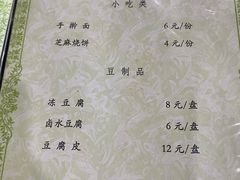 小吃类
手擀面 6元/份
芝麻烧饼 4元/份
豆制品
冻豆腐 8元/盘
卤水豆腐 6元/盘
豆腐皮 12元/盘